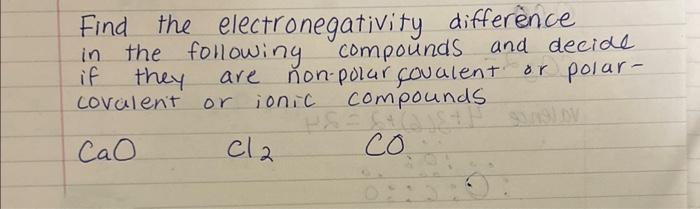 Find the electronegativity difference
in the following compounds and decide
if they are non-polar covalent or polar-
covalent or ionic compounds
CaO Cl2 CO